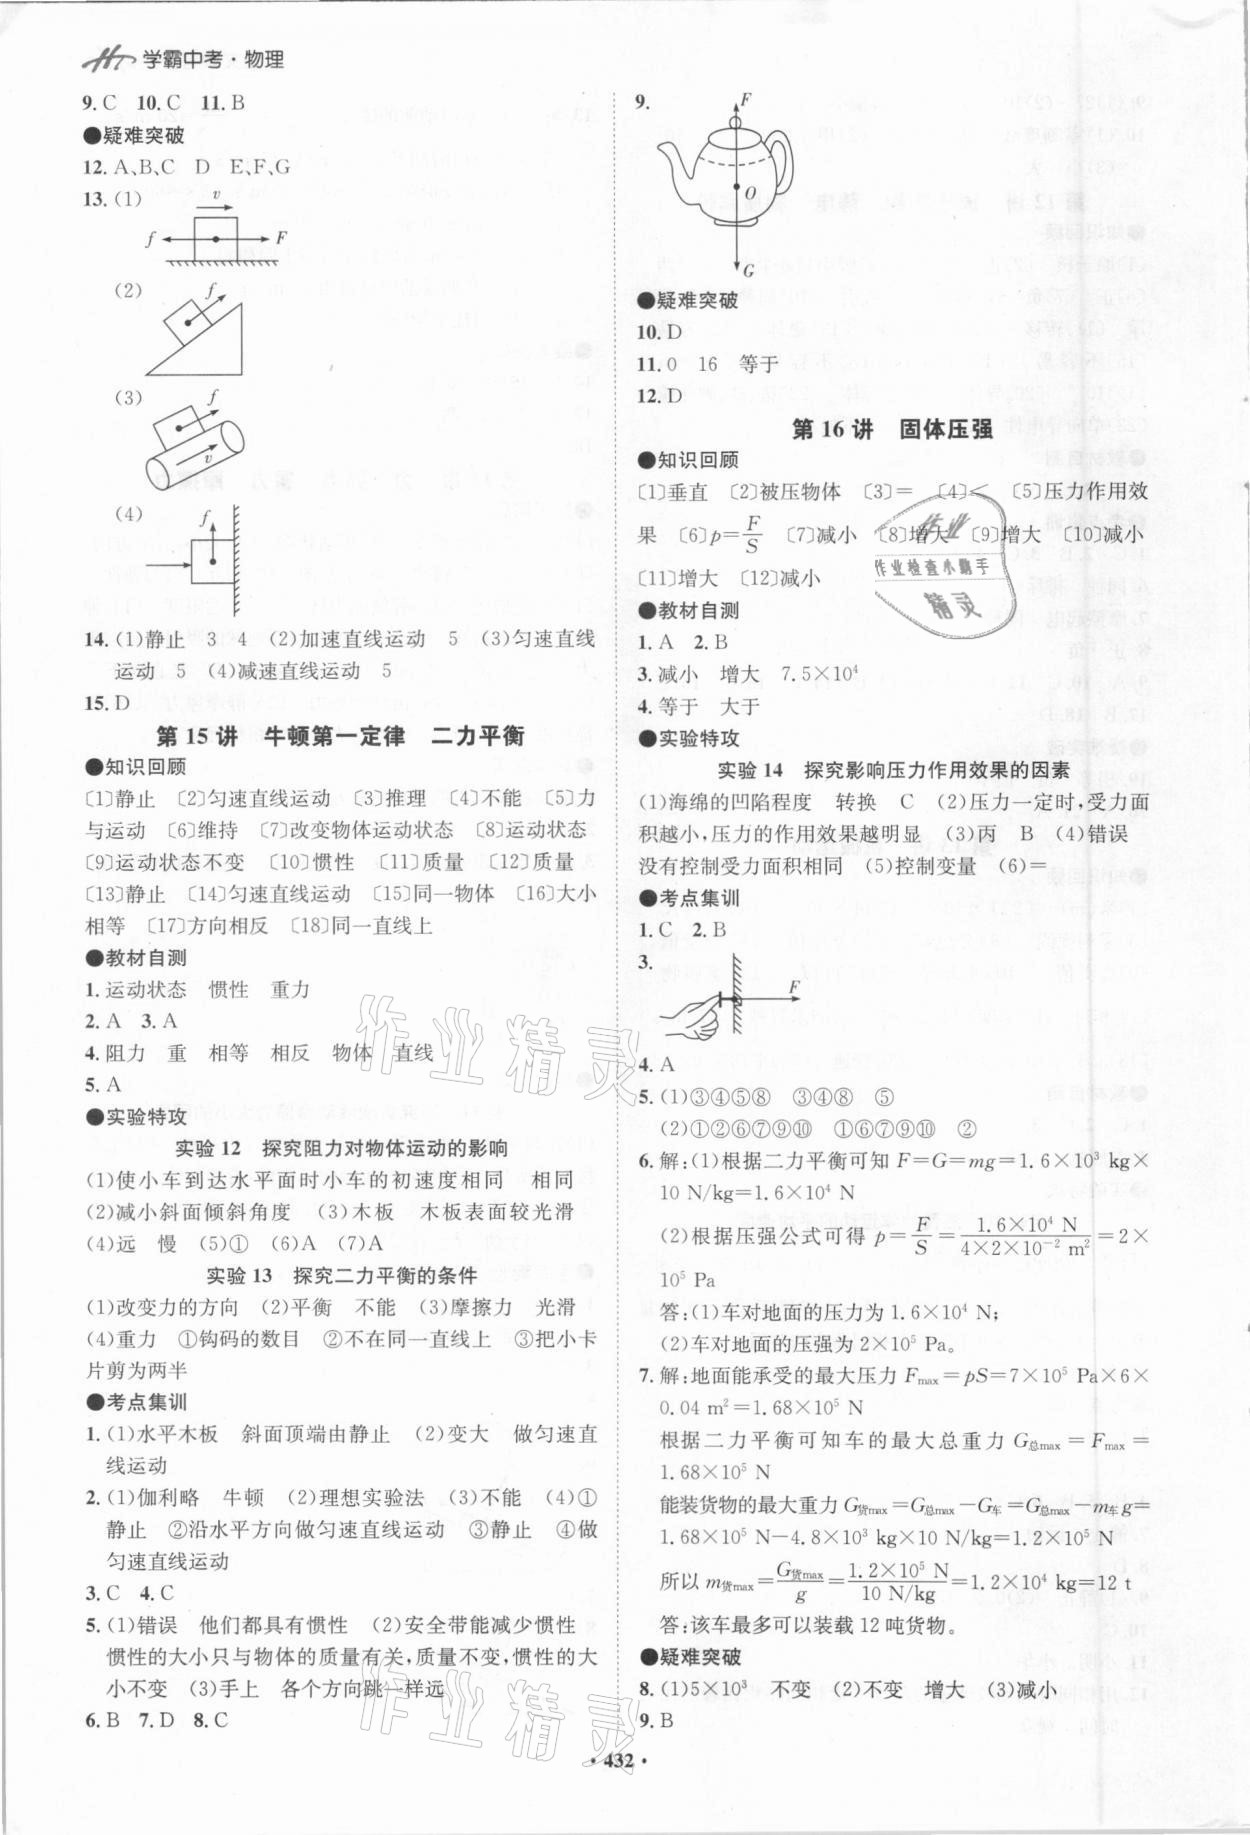 学霸中考·物理
9. C 10. C 11. B
●疑难突破
12. A、B、C D E、F、G
13. (1)
v
f F
(2)
f
(3)
f
v
(4)
f
14. (1)静止 3 4 (2)加速直线运动 5 (3)匀速直线
运动 5 (4)减速直线运动 5
15. D
第 15 讲 牛顿第一定律 二力平衡
●知识回顾
〔1〕静止 〔2〕匀速直线运动 〔3〕推理 〔4〕不能 〔5〕力
与运动 〔6〕维持 〔7〕改变物体运动状态 〔8〕运动状态
〔9〕运动状态不变 〔10〕惯性 〔11〕质量 〔12〕质量
〔13〕静止 〔14〕匀速直线运动 〔15〕同一物体 〔16〕大小
相等 〔17〕方向相反 〔18〕同一直线上
●教材自测
1. 运动状态 惯性 重力
2. A 3. A
4. 阻力 重 相等 相反 物体 直线
5. A
●实验特攻
实验 12 探究阻力对物体运动的影响
(1)使小车到达水平面时小车的初速度相同 相同
(2)减小斜面倾斜角度 (3)木板 木板表面较光滑
(4)远 慢 (5)① (6)A (7)A
实验 13 探究二力平衡的条件
(1)改变力的方向 (2)平衡 不能 (3)摩擦力 光滑
(4)重力 ①钩码的数目 ②不在同一直线上 ③把小卡
片剪为两半
●考点集训
1. (1)水平木板 斜面顶端由静止 (2)变大 做匀速直
线运动
2. (1)伽利略 牛顿 (2)理想实验法 (3)不能 (4)①
静止 ②沿水平方向做匀速直线运动 ③静止 ④做
匀速直线运动
3. C 4. C
5. (1)错误 他们都具有惯性 (2)安全带能减少惯性
惯性的大小只与物体的质量有关,质量不变,惯性的大
小不变 (3)手上 各个方向跳一样远
6. B 7. D 8. C
9.
F
O
G
●疑难突破
10. D
11. 0 16 等于
12. D
第 16 讲 固体压强
●知识回顾
〔1〕垂直 〔2〕被压物体 〔3〕= 〔4〕< 〔5〕压力作用效
果 〔6〕p=F/S 〔7〕减小 〔8〕增大 〔9〕增大 〔10〕减小
〔11〕增大 〔12〕减小
作业
作业检查小助手
精灵
●教材自测
1. A 2. B
3. 减小 增大 7.5×10⁴
4. 等于 大于
●实验特攻
实验 14 探究影响压力作用效果的因素
(1)海绵的凹陷程度 转换 C (2)压力一定时,受力面
积越小,压力的作用效果越明显 (3)丙 B (4)错误
没有控制受力面积相同 (5)控制变量 (6)=
●考点集训
1. C 2. B
3.
F
4. A
5. (1)③④⑤⑧ ③④⑧ ⑤
(2)①②⑥⑦⑨⑩ ①⑥⑦⑨⑩ ②
6. 解:(1)根据二力平衡可知 F=G=mg=1.6×10³ kg×
10 N/kg=1.6×10⁴ N
(2)根据压强公式可得 p=F/S=1.6×10⁴ N/4×2×10⁻² m²=2×
10⁵ Pa
答:(1)车对地面的压力为 1.6×10⁴ N;
(2)车对地面的压强为 2×10⁵ Pa。
7. 解:地面能承受的最大压力 Fmax=pS=7×10⁵ Pa×6×
0.04 m²=1.68×10⁵ N
根据二力平衡可知车的最大总重力 G总max=Fmax=
1.68×10⁵ N
能装货物的最大重力 G货max=G总max−G车=G总max−m车g=
1.68×10⁵ N−4.8×10³ kg×10 N/kg=1.2×10⁵ N
所以 m货max=G货max/g=1.2×10⁵ N/10 N/kg=1.2×10⁴ kg=12 t
答:该车最多可以装载 12 吨货物。
●疑难突破
8. (1)5×10³ 不变 (2)不变 增大 (3)减小
9. B
作业精灵
作业精灵
· 432 ·